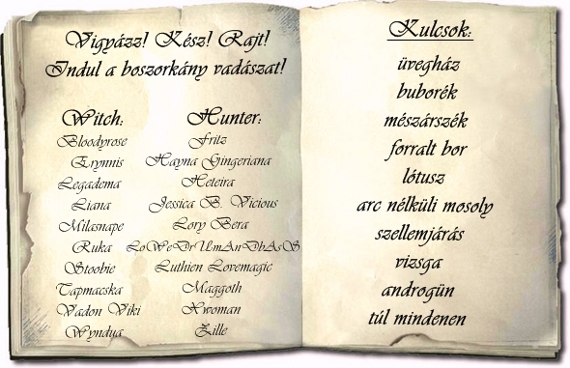 Vigyázz! Kész! Rajt!
Indul a boszorkány vadászat!
Witch: Hunter:
Bloodyrose Fritz
Erynnis Hayna Gingeriana
Legadema Heteira
Liana Jessica B. Vicious
Milasnape Lory Bera
Ruka LoWeDrUmAnDbAsS
Stoobie Luthien Lovemagic
Tapmacska Maggoth
Vadon Viki Xwoman
Wyndua Zille
Kulcsok:
üvegház
buborék
mészárszék
forralt bor
lótusz
arc nélküli mosoly
szellemjárás
vizsga
androgün
túl mindenen